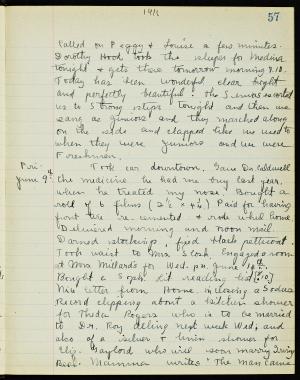 1911
57
Called on Peggy & Louise a few minutes.
Dorothy Hood took the sleeper for Medina
tonight & gets there tomorrow morning 9.10.
Today has been wonderful clear bright
and perfectly beautiful. The Seniors escorted
us to Strong steps tonight and then we
sang as Juniors and they marched along
on the side and clapped like we used to
when they were Juniors and we were
Freshmen.
Fri. Took car downtown. Gave Dr. Caldwell
June 9th the medicine he had me buy last year,
when he treated my nose. Bought a
roll of 6 films (2½ x 4¼) Paid for having
front tire re-cemented & rode wheel home
Delivered morning and noon mail.
Darned stockings, fixed black petticoat.
Took waist to Mrs. Slosh. Engaged a room
at Mrs. Millard's for Wed. p.m. June 14th.
Bought a Soph Lit reading list (10)
Nice letter from Home, inclosing a Sodus
Record clipping about a kitchen shower
for Theda Rogers who is to be married
to Dr. Roy next week Wed. and
also of a silver & linen shower for
Eliz. Gaylord who will soon marry Irving
Mamma writes: "The man came